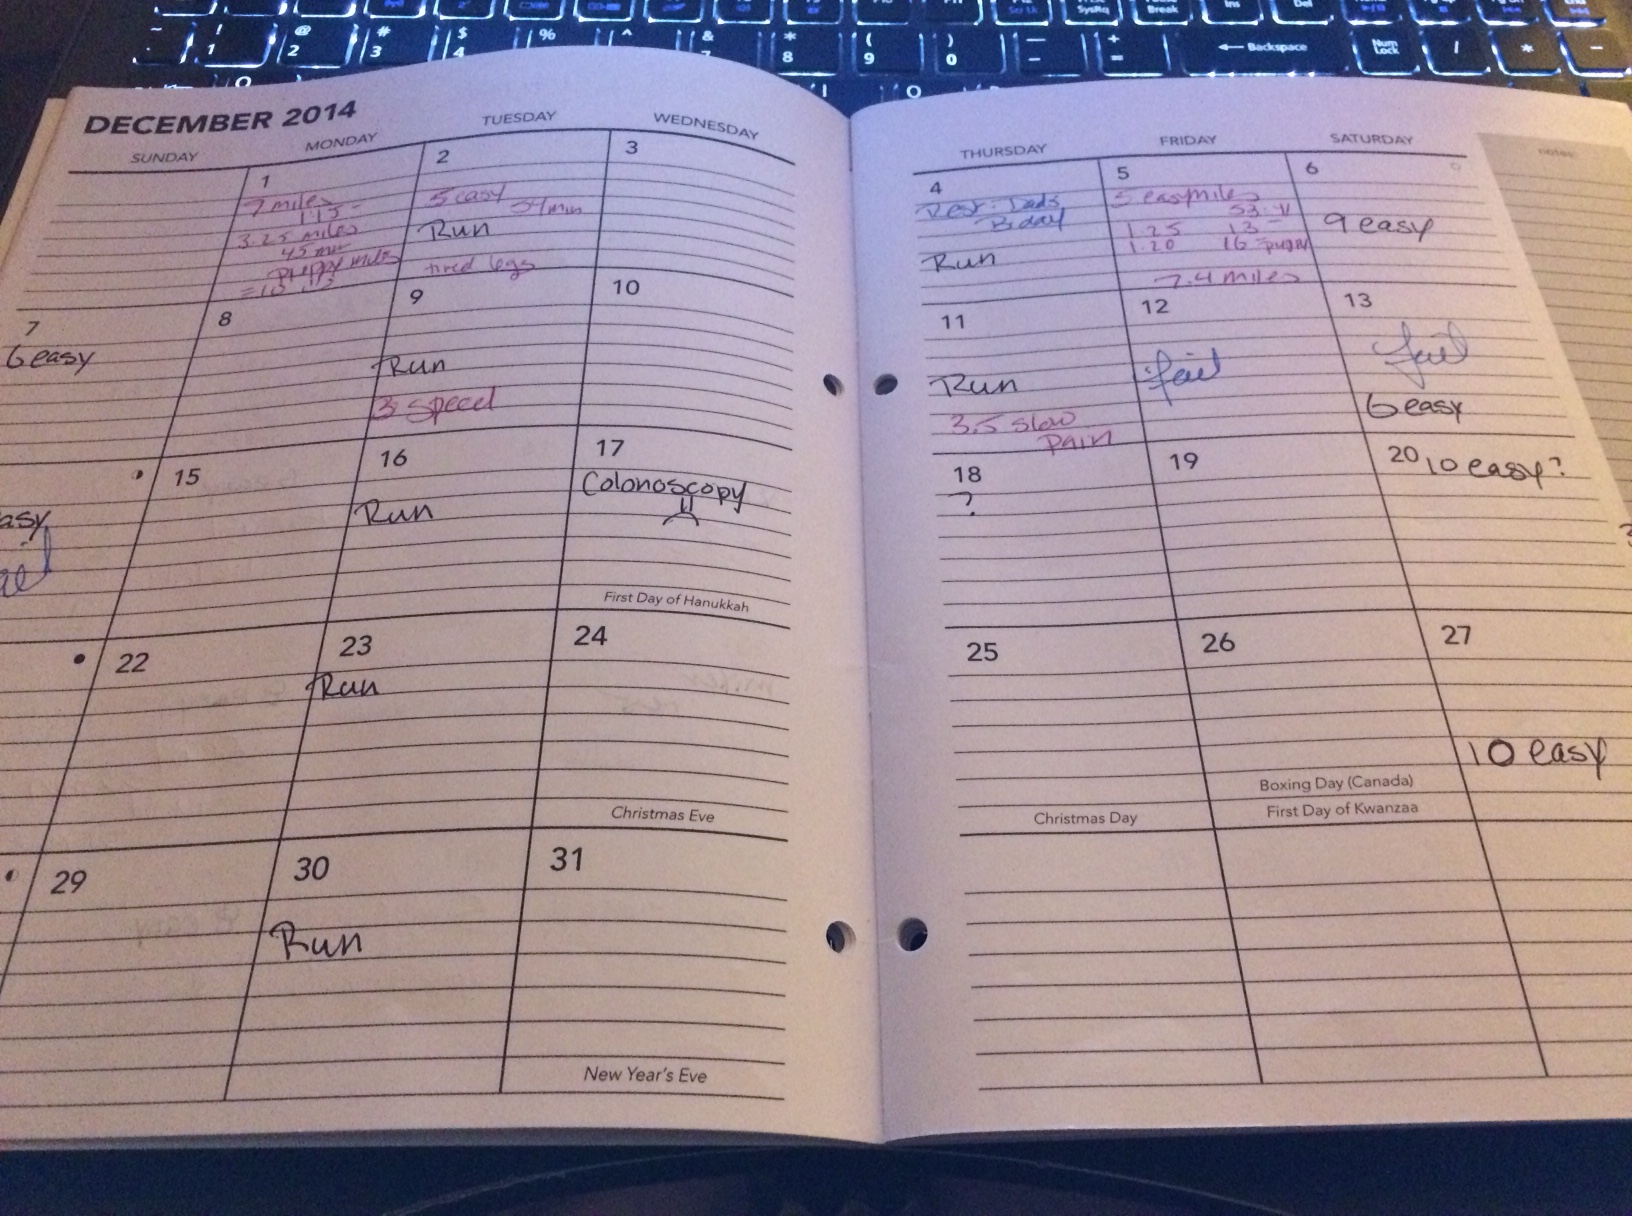 ! 1
@ 2
# 3
$ 4
%
^
& 7
* 8
( 9
) 0
_ -
+ =
← Backspace
SysRq
Pause Break
Ins
Del
Num Lock
/
*
-
DECEMBER 2014
SUNDAY MONDAY TUESDAY WEDNESDAY THURSDAY FRIDAY SATURDAY
notes:
1
7 miles
1:15
3.25 miles
45 min
puppy miles
2
5 easy
54min
Run
tired legs
3
4
Rest - Dad's
B day
Run
5
5 easy miles
1.25 13
1.20 16
7.4 miles
6
9 easy
7
6 easy
8
9
Run
3 speed
10
11
Run
3.5 slow
PAIN
12
fail
13
fail
6 easy
asy
15
16
Run
17
Colonoscopy
First Day of Hanukkah
18
?
19
20 10 easy?
22
23
Run
24
Christmas Eve
25
Christmas Day
26
Boxing Day (Canada)
First Day of Kwanzaa
27
10 easy
29
30
Run
31
New Year's Eve